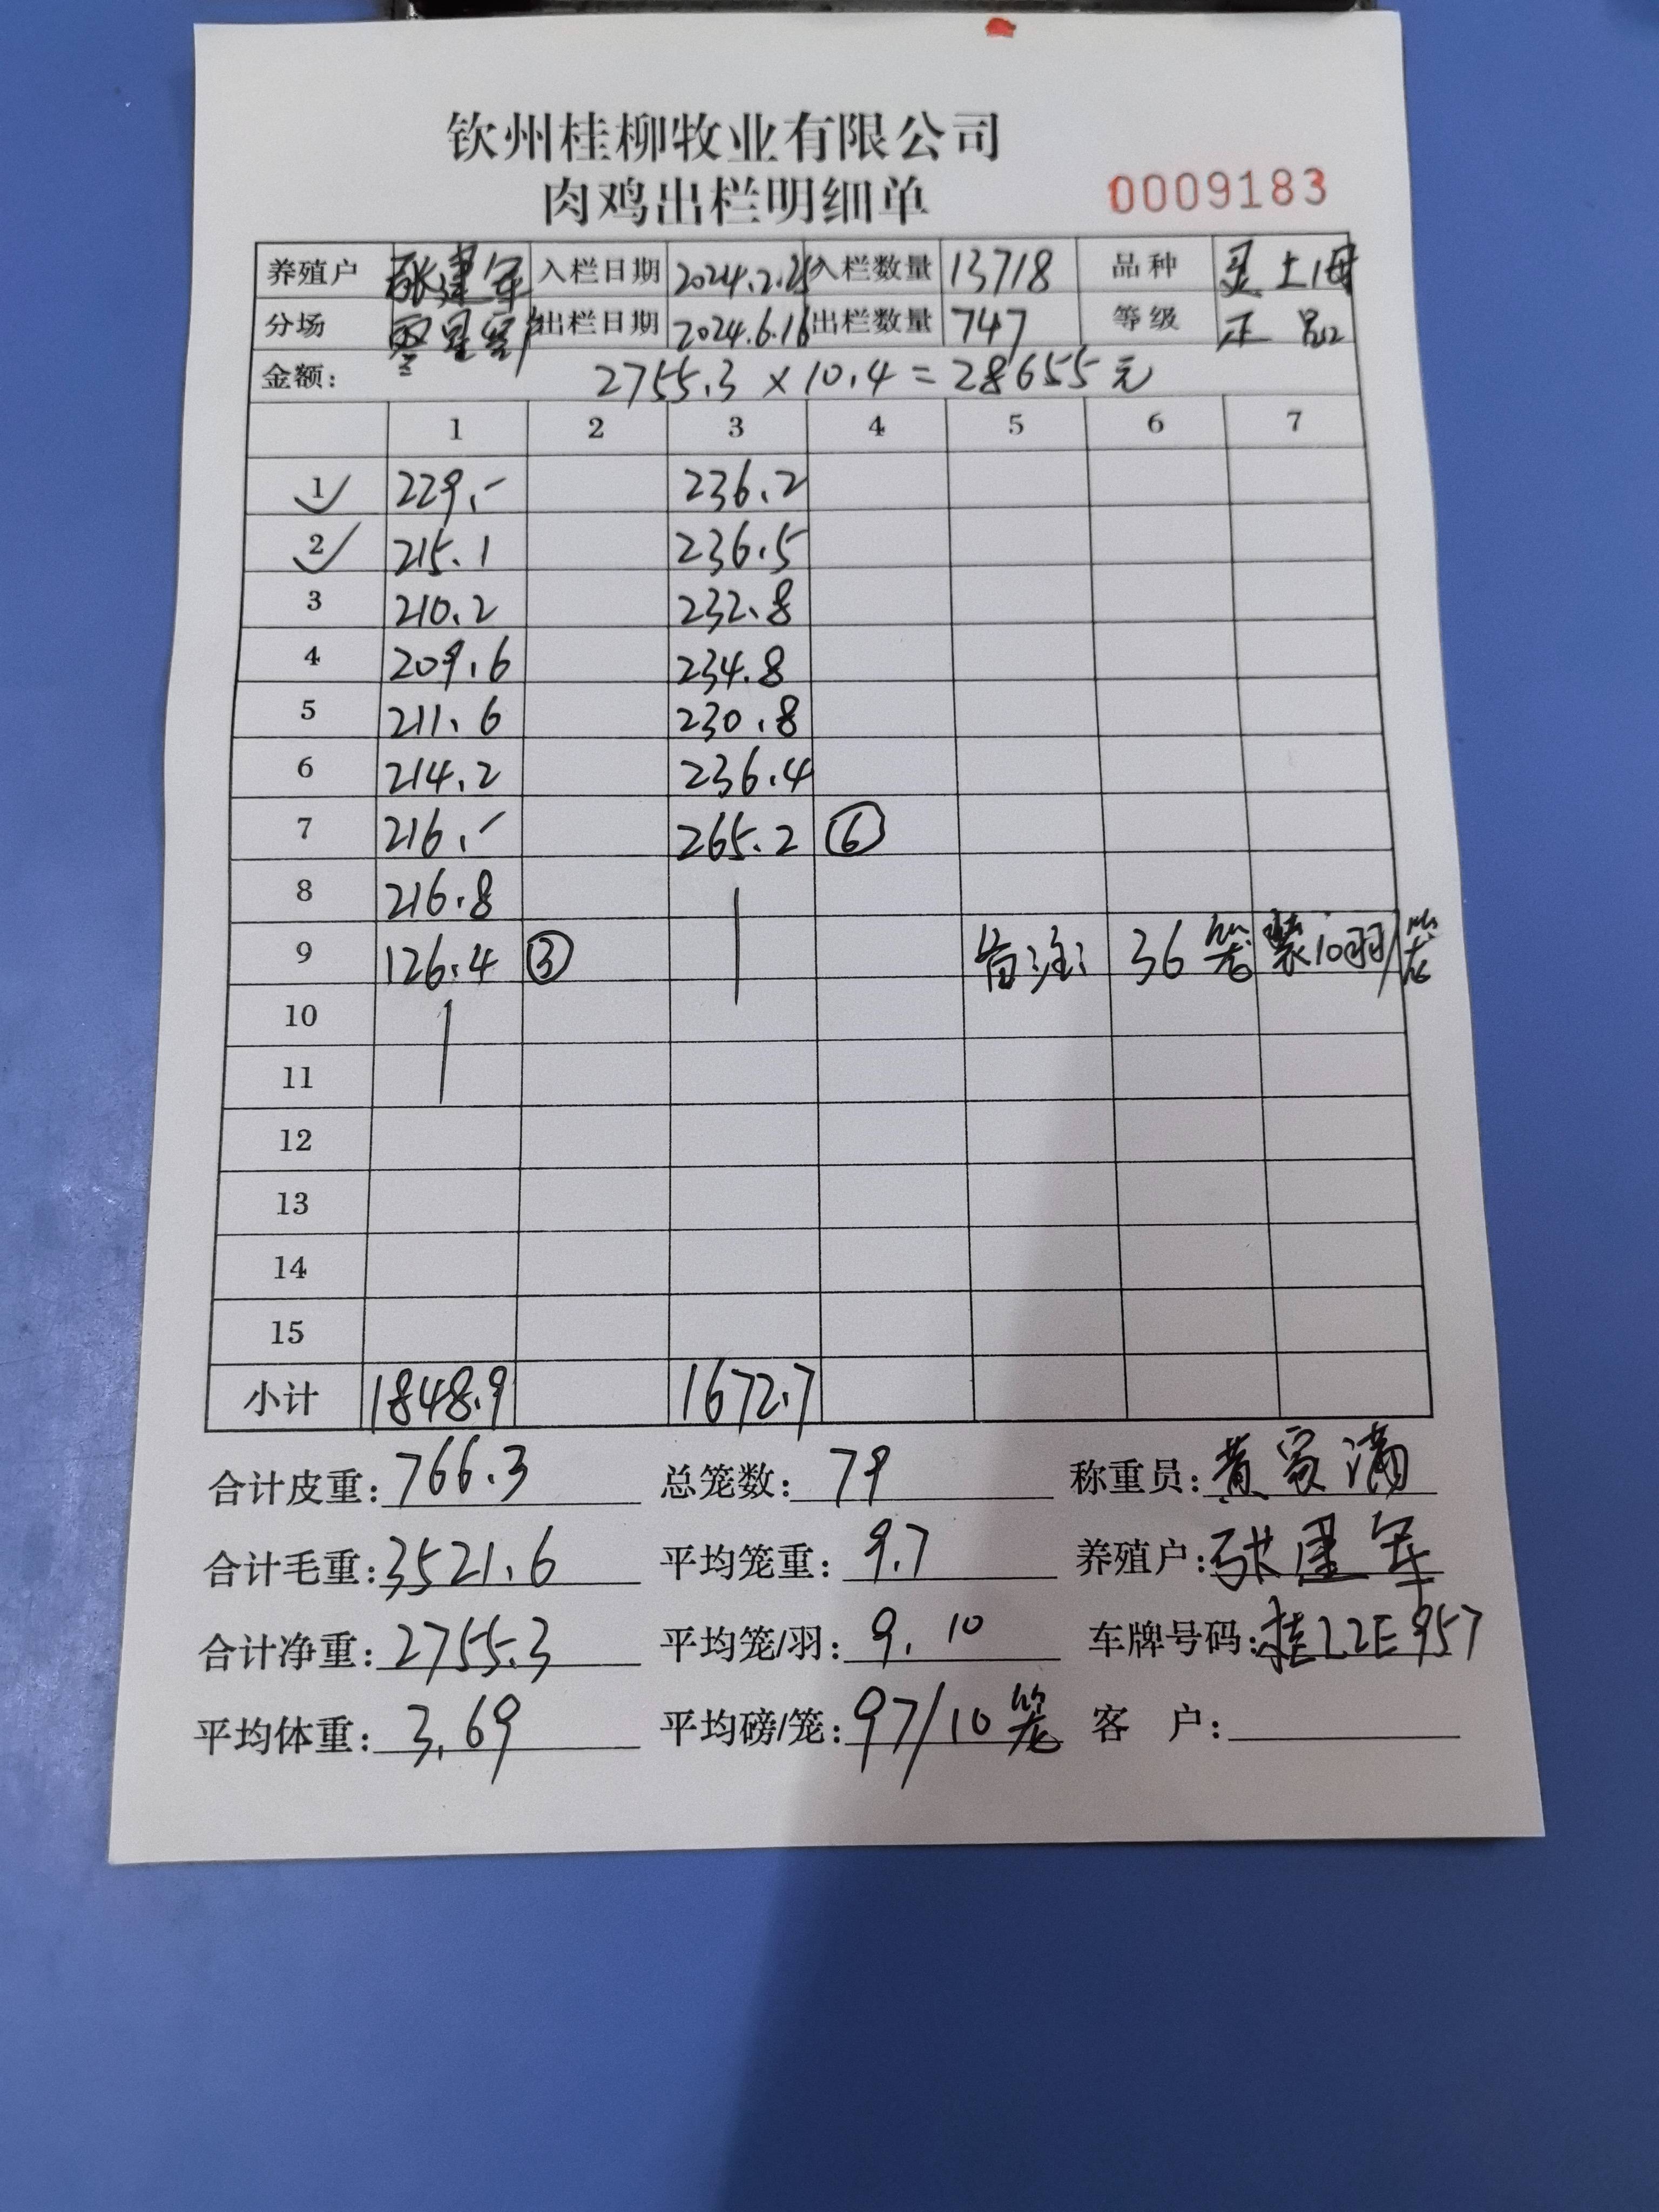 钦州桂柳牧业有限公司
肉鸡出栏明细单 0009183
养殖户 张建军 入栏日期 2024.2.25 入栏数量 13718 品种 灵土1母
分场 出栏日期 2024.6.16 出栏数量 747 等级 正品
金额: 2755.3 × 10.4 = 28655元
1 2 3 4 5 6 7
1 229.- 236.2
2 215.1 236.5
3 210.2 232.8
4 209.6 234.8
5 211.6 230.8
6 214.2 236.4
7 216.- 265.2 ⑥
8 216.8
9 126.4 ③ 备注: 36笼 装10羽/笼
10
11
12
13
14
15
小计 1848.9 1672.7
合计皮重: 766.3 总笼数: 79 称重员: 黄家满
合计毛重: 3521.6 平均笼重: 9.7 养殖户: 张建军
合计净重: 2755.3 平均笼/羽: 9.10 车牌号码: 桂L2E957
平均体重: 3.69 平均磅/笼: 97/10笼 客 户: